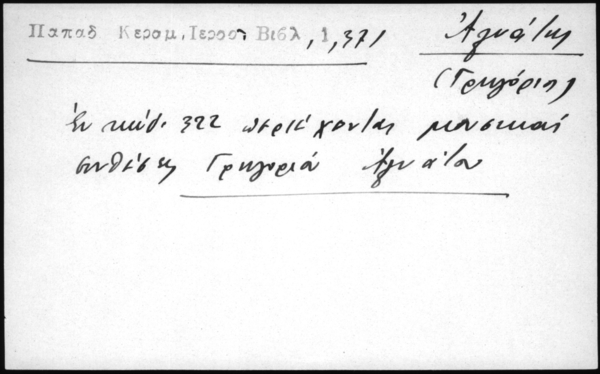 Παπαδ Κεραμ, Ιεροσ. Βιβλ, 1, 371
Ἀλυάτης
(Γρηγόριος)
Ἐν κώδ. 322 περιέχονται μουσικαί
συνθέσεις Γρηγορίου Ἀλυάτου